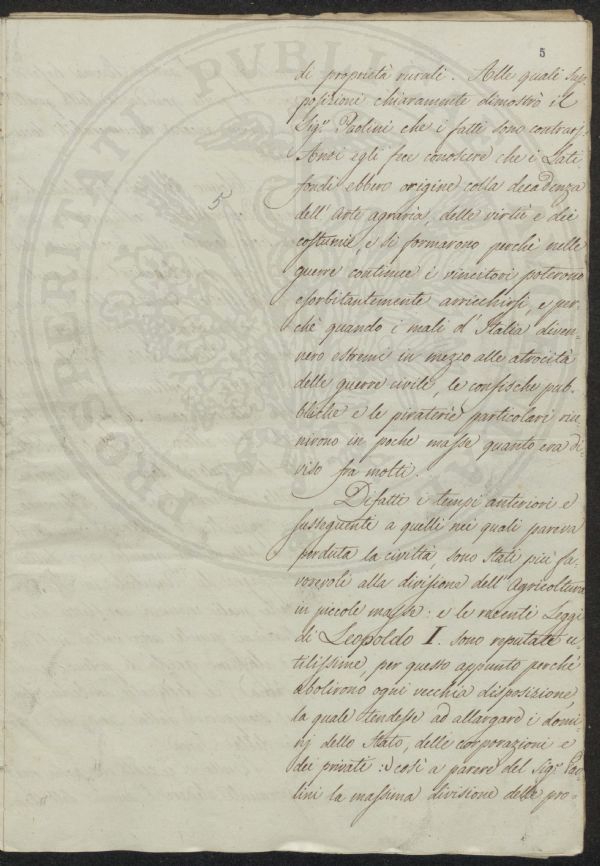 5
di proprietà rurali. Alle quali sup-
posizioni chiaramente dimostrò il
Sig.r Paolini che i fatti sono contrarj.
Anzi egli fece conoscere che i Lati-
fondi ebbero origine colla decadenza
dell'Arte agraria, delle virtù e dei
costumi, e si formarono perchè nelle
guerre continue i vincitori poterono
esorbitantemente arricchirsi, e per-
chè quando i mali d'Italia diven-
nero estremi in mezzo alle atrocità
delle guerre civili, le confische pub-
bliche e le piraterie particolari riu-
nirono in poche masse quanto era di-
viso fra molti.
Difatti i tempi anteriori e
susseguenti a quelli nei quali pareva
perduta la civiltà, sono stati più fa-
vorevoli alla divisione dell'Agricoltura
in piccole masse: e le recenti Leggi
di Leopoldo I. sono reputate u-
tilissime, per questo appunto perchè
abolirono ogni vecchia disposizione,
la quale tendesse ad allargare i domi-
nj dello Stato, delle corporazioni e
dei privati: così a parere del Sig.r Pao-
lini la massima divisione delle pro-
5
PROSPERITATI PUBLICAE